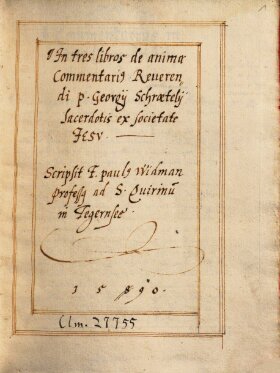 In tres libros de anima
Commentariꝰ Reveren
di p. Georgij Schrœtelij
Sacerdotis ex societate
Jesv
Scripsit F. paulꝰ Widman
professꝰ ad S. Quirinū
in Tegernseè
1590.
Clm. 27755